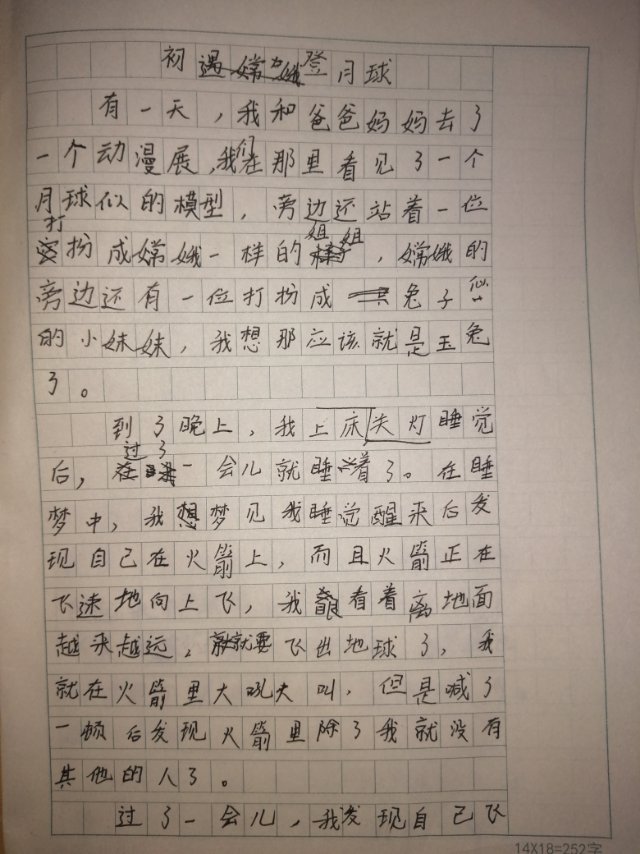 初遇嫦娥登月球
有一天，我和爸爸妈妈去了
一个动漫展，我们在那里看见了一个
月球似的模型，旁边还站着一位
打扮成嫦娥一样的姐姐，嫦娥的
旁边还有一位打扮成兔子似
的小妹妹，我想那应该就是玉兔
了。
到了晚上，我上床关灯睡觉
后，过了一会儿就睡着了。在睡
梦中，我梦见我睡觉醒来后发
现自己在火箭上，而且火箭正在
飞速地向上飞，我眼看着离地面
越来越远，就要飞出地球了，我
就在火箭里大吼大叫，但是喊了
一顿后发现火箭里除了我就没有
其他的人了。
过了一会儿，我发现自己飞
14X18=252字